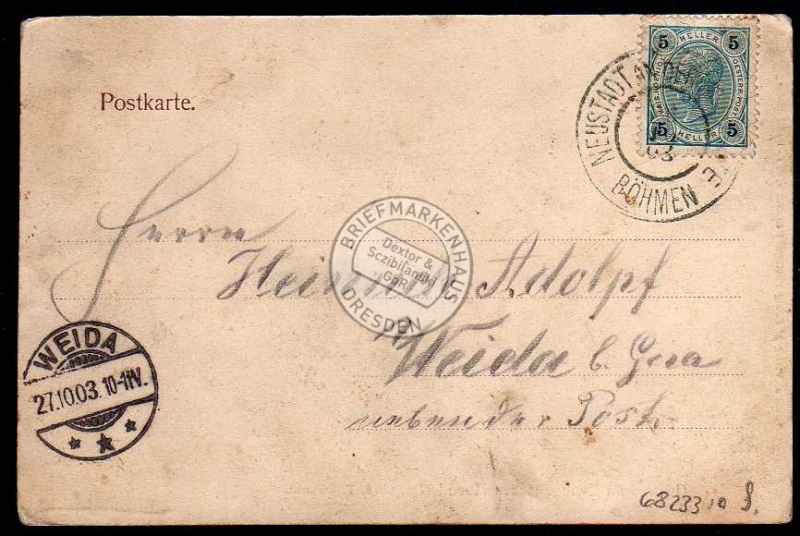 Postkarte.
5 HELLER 5
5 HELLER 5
NEUSTADT AN DER
BÖHMEN
03
Herrn
Heinrich Adolf
Weida b. Gera
neben der Post.
BRIEFMARKENHAUS
Dextor &
Sczibilanski
GbR
DRESDEN
WEIDA
27.10.03. 10-11V.
68233 10